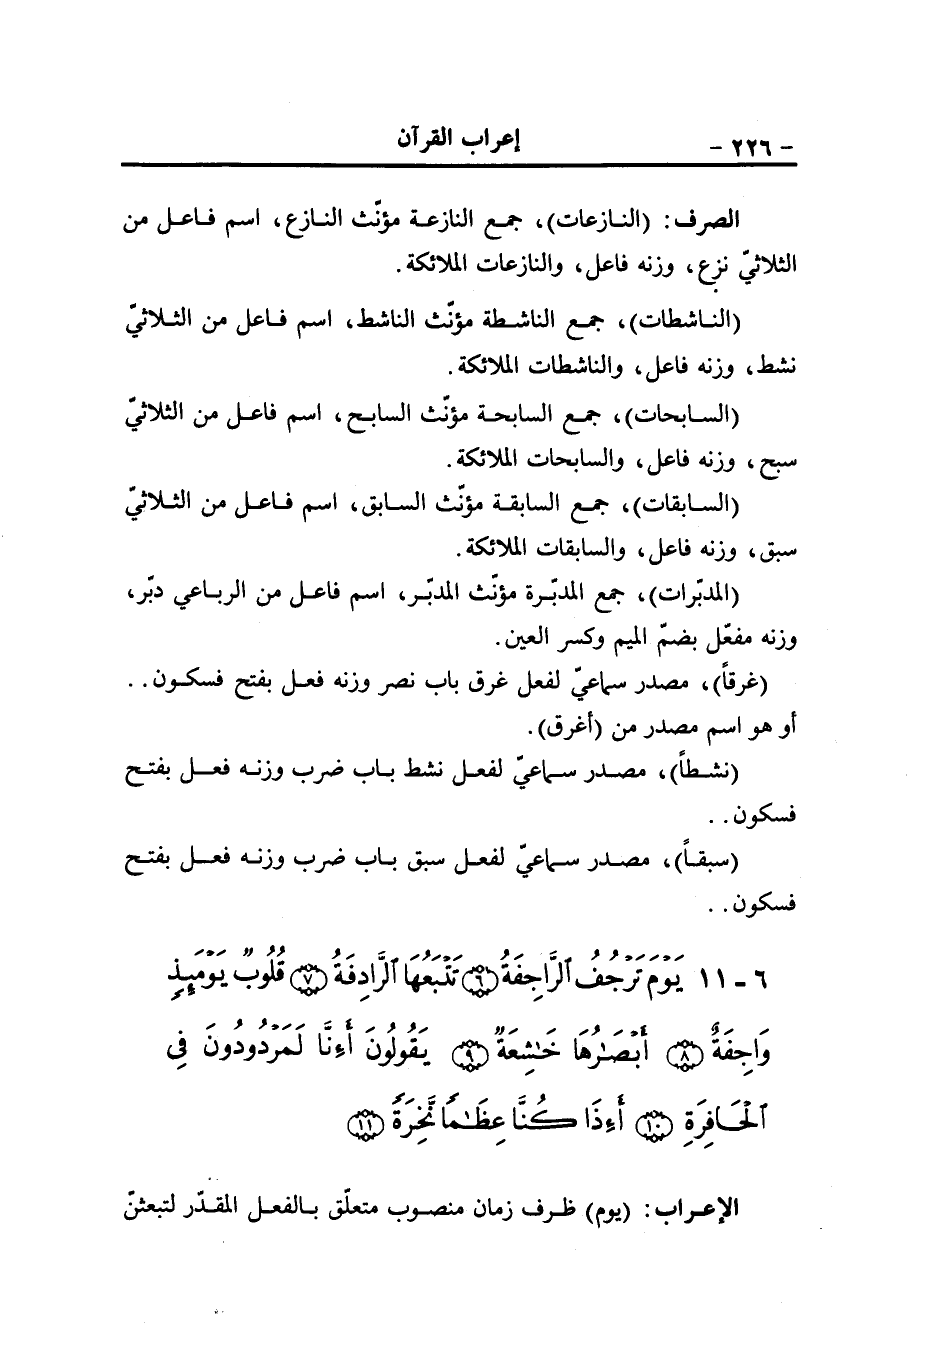 - ٢٢٦ - إعراب القرآن
الصرف: (النازعات)، جمع النازعة مؤنّث النازع، اسم فاعل من
الثلاثيّ نزع، وزنه فاعل، والنازعات الملائكة.
(الناشطات)، جمع الناشطة مؤنّث الناشط، اسم فاعل من الثلاثيّ
نشط، وزنه فاعل، والناشطات الملائكة.
(السابحات)، جمع السابحة مؤنّث السابح، اسم فاعل من الثلاثيّ
سبح، وزنه فاعل، والسابحات الملائكة.
(السابقات)، جمع السابقة مؤنّث السابق، اسم فاعل من الثلاثيّ
سبق، وزنه فاعل، والسابقات الملائكة.
(المدبّرات)، جمع المدبّرة مؤنّث المدبّر، اسم فاعل من الرباعي دبّر،
وزنه مفعّل بضمّ الميم وكسر العين.
(غرقاً)، مصدر سماعيّ لفعل غرق باب نصر وزنه فعل بفتح فسكون..
أو هو اسم مصدر من (أغرق).
(نشطاً)، مصدر سماعيّ لفعل نشط باب ضرب وزنه فعل بفتح
فسكون..
(سبقاً)، مصدر سماعيّ لفعل سبق باب ضرب وزنه فعل بفتح
فسكون..
٦ - ١١ يَوْمَ تَرْجُفُ ٱلرَّاجِفَةُ ۝٦ تَتْبَعُهَا ٱلرَّادِفَةُ ۝٧ قُلُوبٌ يَوْمَئِذٍ
وَاجِفَةٌ ۝٨ أَبْصَٰرُهَا خَٰشِعَةٌ ۝٩ يَقُولُونَ أَءِنَّا لَمَرْدُودُونَ فِى
ٱلْحَافِرَةِ ۝١٠ أَءِذَا كُنَّا عِظَٰمًا نَّخِرَةً ۝١١
الإعراب: (يوم) ظرف زمان منصوب متعلّق بالفعل المقدّر لتبعثنّ